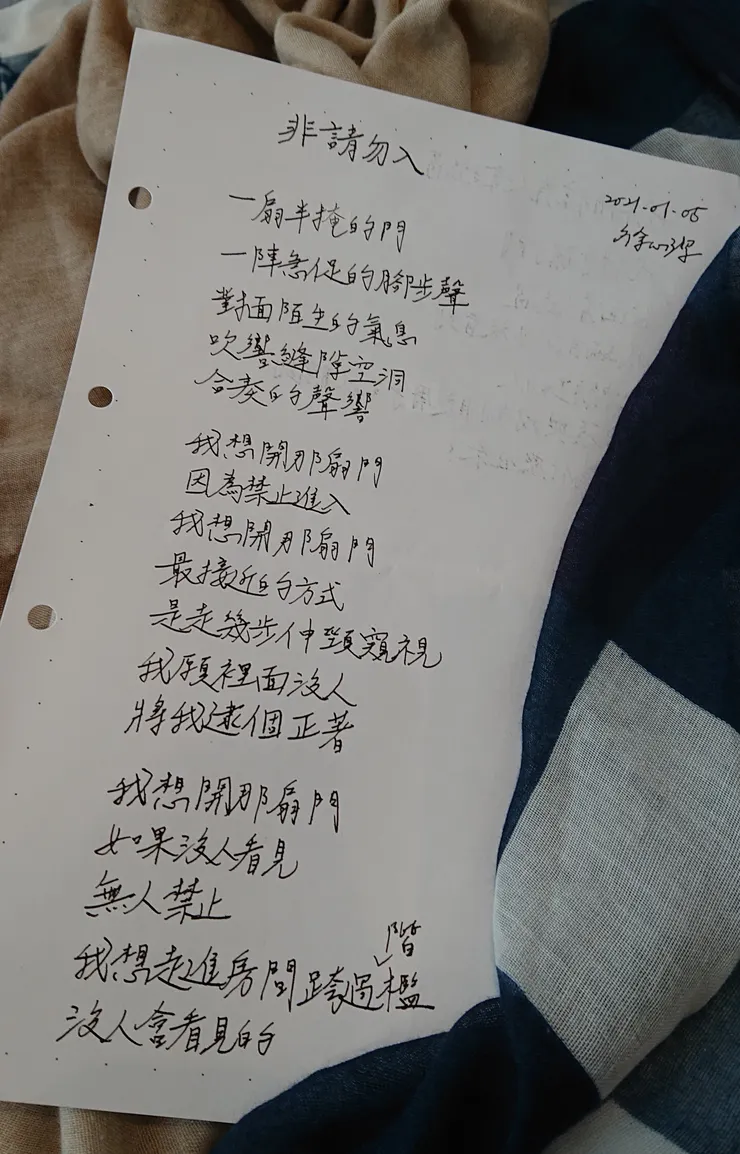 非請勿入
2021.01.05
一扇半掩的門
一陣急促的腳步聲
對面陌生的氣息
吹響縫隙空洞
合奏的聲響
我想開那扇門
因為禁止進入
我想開那扇門
最接近的方式
是走幾步伸頸窺視
我願裡面沒人
將我逮個正著
我想開那扇門
如果沒人看見
無人禁止
我想走進房間跨過階檻
沒人會看見的